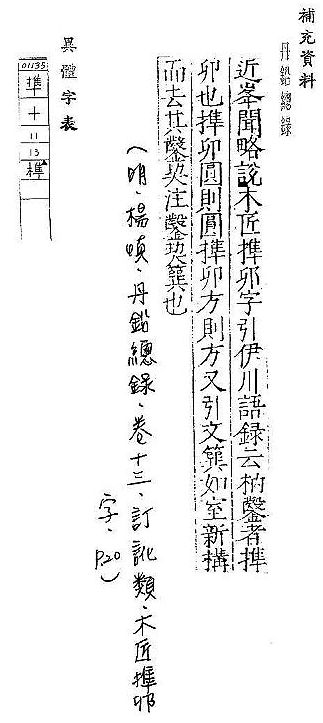 補充資料
丹鉛總錄
近峯聞略說木匠榫卯字引伊川語録云枘鑿者榫
卯也榫卯圓則圓榫卯方則方又引文簨如室新搆
而去其鑿契注鑿契簨也
(明.楊慎.丹鉛總錄.卷十三.訂訛類.木匠榫卯
字.P.20)
異體字表
01135
榫
十
11
13
榫